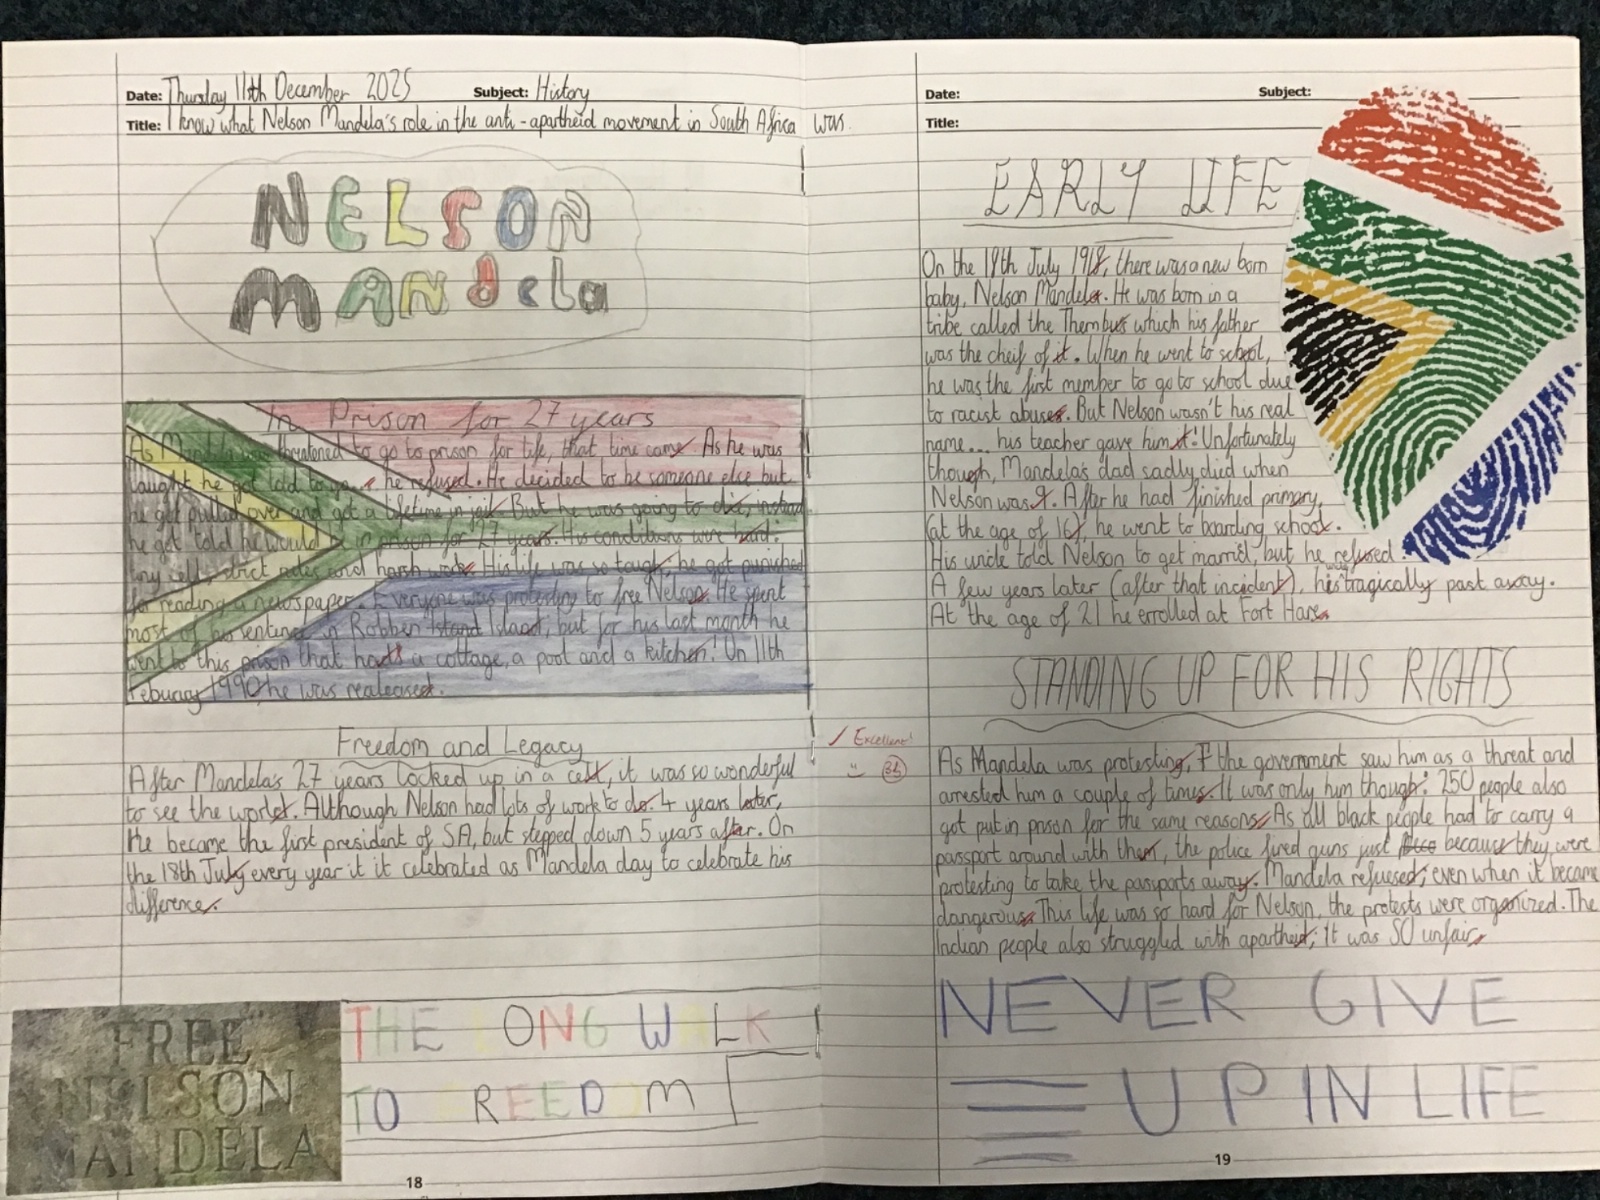 Date: Thursday 11th December 2025 Subject: History
Title: I know what Nelson Mandela's role in the anti-apartheid movement in South Africa was.
NELSON
MANdela
In Prison for 27 years
As Mandela was threatened to go to prison for life, that time came. As he was
caught he got told to go he refused. He decided to be someone else but
he got pulled over and got a lifetime in jail. But he was going to die, instead
he got told he would in prison for 27 years. His conditions were hard:
tiny cell, strict rules and harsh work. His life was so tough, he got punished
for reading a newspaper. Everyone was protesting to free Nelson. He spent
most of his sentence in Robben Island Island, but for his last month he
went to this prison that had a cottage, a pool and a kitchen! On 11th
Febuary 1990, he was realeased.
Freedom and Legacy
After Mandela's 27 years locked up in a cell, it was so wonderful
to see the world. Although Nelson had lots of work to do. 4 years later,
He became the first president of SA, but stepped down 5 years after. On
the 18th July every year it it celebrated as Mandela day to celebrate his
difference.
Excellent!
FREE
NELSON
MANDELA
THE LONG WALK
TO FREEDOM
18
Date: Subject:
Title:
EARLY LIFE
On the 18th July 1918, there was a new born
baby, Nelson Mandela. He was born in a
tribe called the Thembus which his father
was the cheif of it. When he went to school,
he was the first member to go to school due
to racist abuses. But Nelson wasn't his real
name... his teacher gave him it! Unfortunately
though, Mandela's dad sadly died when
Nelson was 9. After he had finished primary,
at the age of 16, he went to boarding school.
His uncle told Nelson to get marrid, but he refused.
A few years later (after that incident), he was tragically past away.
At the age of 21 he enrolled at Fort Hare
STANDING UP FOR HIS RIGHTS
As Mandela was protesting, the government saw him as a threat and
arrested him a couple of times. It was only him though: 250 people also
got put in prison for the same reasons. As all black people had to carry a
passport around with them, the police fired guns just because they were
protesting to take the passports away. Mandela refuesed; even when it became
dangerous. This life was so hard for Nelson, the protests were organized. The
Indian people also struggled with apartheid; It was SO unfair.
NEVER GIVE
UP IN LIFE
19